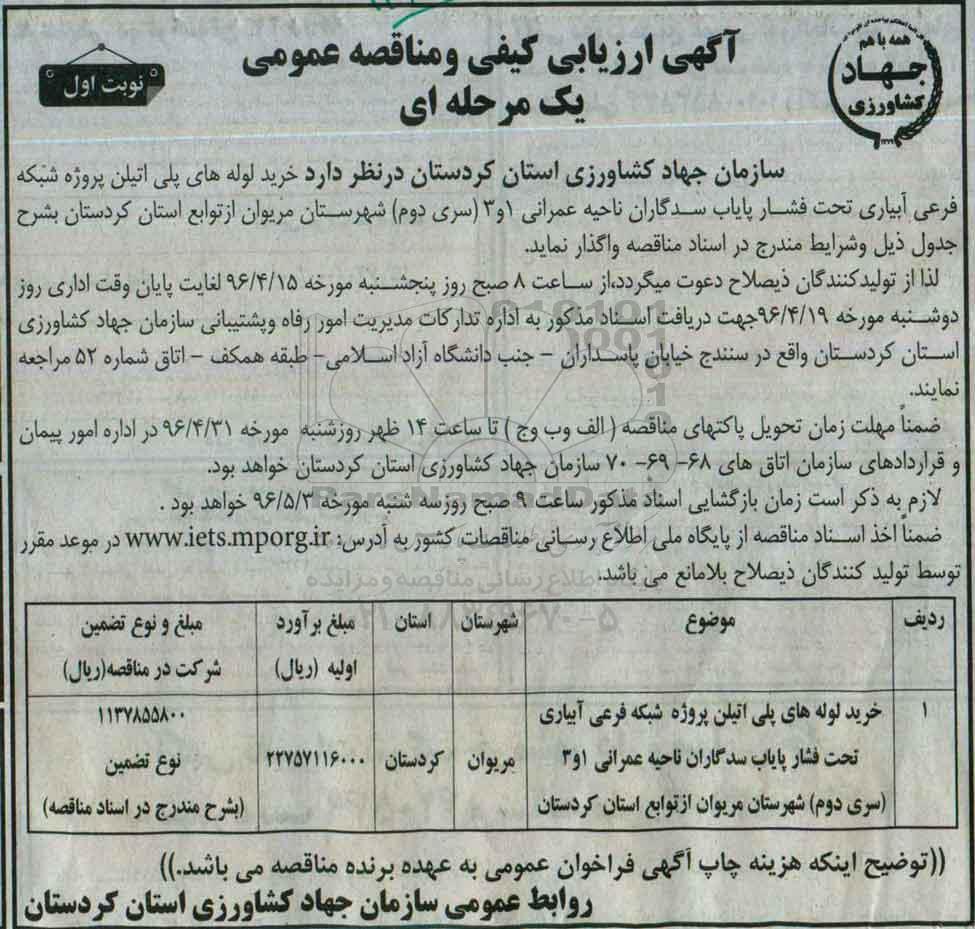 همه با هم
جهاد
کشاورزی
آگهی ارزیابی کیفی ومناقصه عمومی
یک مرحله ای
نوبت اول
سازمان جهاد کشاورزی استان کردستان درنظر دارد خرید لوله های پلی اتیلن پروژه شبکه
فرعی آبیاری تحت فشار پایاب سدگاران ناحیه عمرانی ۱و۳ (سری دوم) شهرستان مریوان ازتوابع استان کردستان بشرح
جدول ذیل وشرایط مندرج در اسناد مناقصه واگذار نماید.
لذا از تولیدکنندگان ذیصلاح دعوت میگردد،از ساعت ۸ صبح روز پنجشنبه مورخه ۹۶/۴/۱۵ لغایت پایان وقت اداری روز
دوشنبه مورخه ۹۶/۴/۱۹جهت دریافت اسناد مذکور به اداره تدارکات مدیریت امور رفاه وپشتیبانی سازمان جهاد کشاورزی
استان کردستان واقع در سنندج خیابان پاسداران – جنب دانشگاه آزاد اسلامی– طبقه همکف – اتاق شماره ۵۲ مراجعه
نمایند.
ضمناً مهلت زمان تحویل پاکتهای مناقصه ( الف وب وج ) تا ساعت ۱۴ ظهر روزشنبه مورخه ۹۶/۴/۳۱ در اداره امور پیمان
و قراردادهای سازمان اتاق های ۶۸– ۶۹– ۷۰ سازمان جهاد کشاورزی استان کردستان خواهد بود.
لازم به ذکر است زمان بازگشایی اسناد مذکور ساعت ۹ صبح روزسه شنبه مورخه ۹۶/۵/۳ خواهد بود .
ضمناً اخذ اسناد مناقصه از پایگاه ملی اطلاع رسانی مناقصات کشور به آدرس: www.iets.mporg.ir در موعد مقرر
توسط تولید کنندگان ذیصلاح بلامانع می باشد.
ردیف موضوع شهرستان استان مبلغ برآورد مبلغ و نوع تضمین
اولیه (ریال) شرکت در مناقصه(ریال)
۱ خرید لوله های پلی اتیلن پروژه شبکه فرعی آبیاری ۱۱۳۷۸۵۵۸۰۰
تحت فشار پایاب سدگاران ناحیه عمرانی ۱و۳ مریوان کردستان ۲۲۷۵۷۱۱۶۰۰۰ نوع تضمین
(سری دوم) شهرستان مریوان ازتوابع استان کردستان (بشرح مندرج در اسناد مناقصه)
((توضیح اینکه هزینه چاپ آگهی فراخوان عمومی به عهده برنده مناقصه می باشد.))
روابط عمومی سازمان جهاد کشاورزی استان کردستان